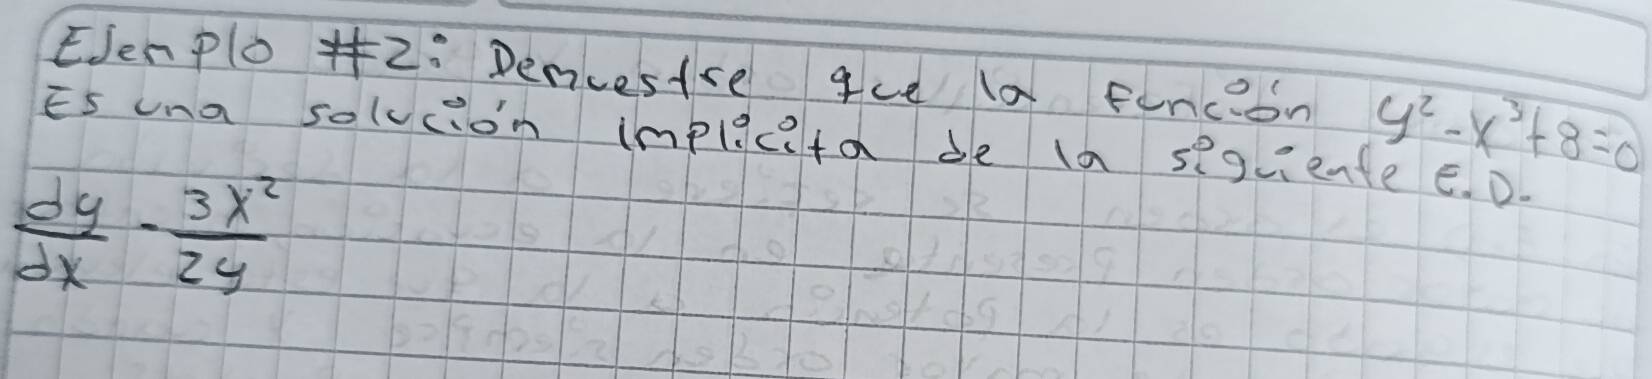 EJemplo #2: Demuestre que la Función y² - x³ + 8 = 0
Es una solución implícita de la siguiente E.D.
dy/dx - 3x²/2y